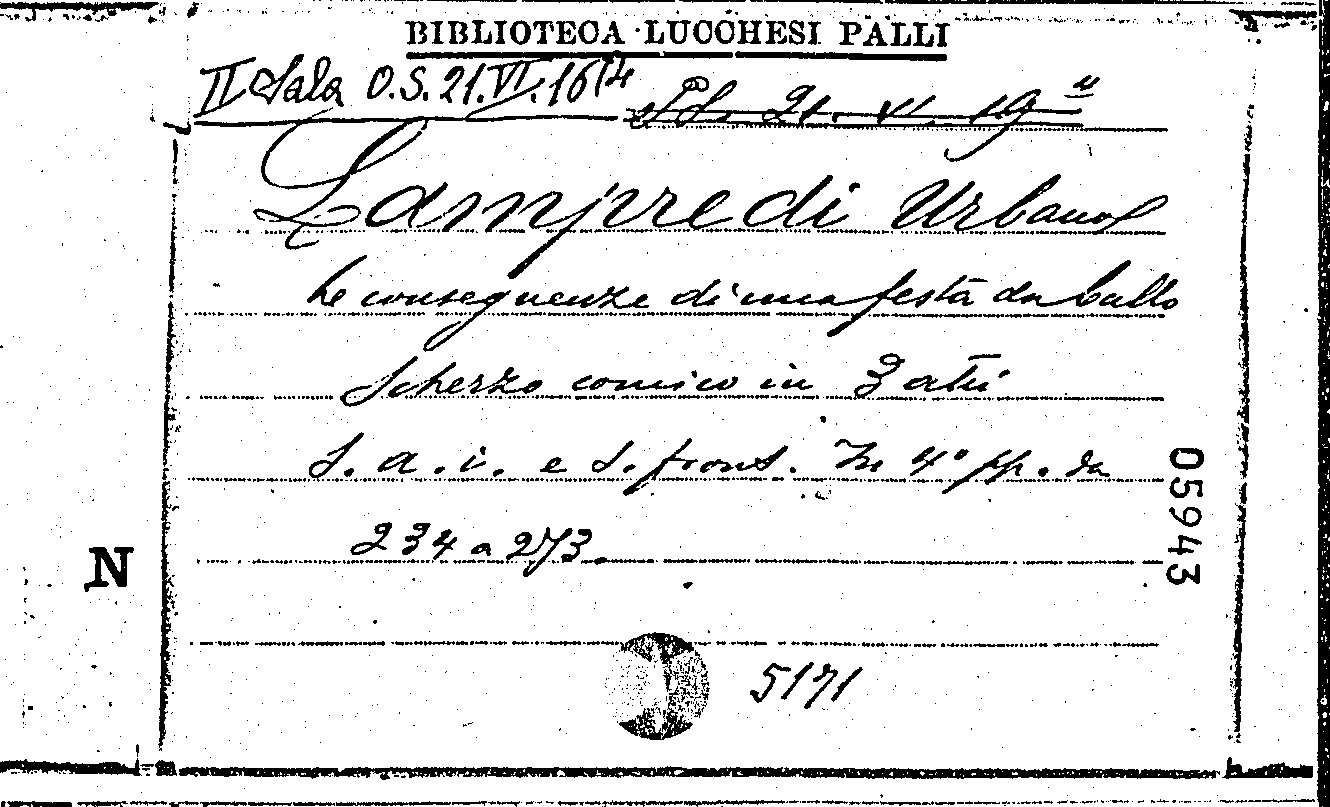 BIBLIOTECA LUCCHESI PALLI
II Sala O.S. 21.VI.16
21. VI. 19
Lampredi Urbano
Le conseguenze di una festa da ballo
Scherzo comico in 3 atti
S. a. i. e s. front. In 4° pp. da
234 a 273.
N
05943
5171